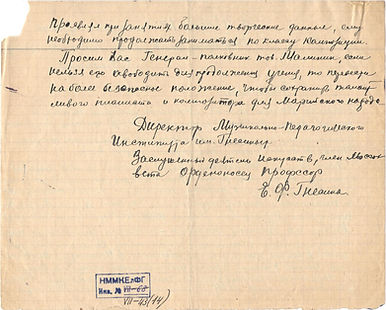 Проявляя при занятиях большие творческие данные, ему
необходимо продолжать заниматься по классу композиции.
Просим Вас Генерал-полковник тов. Шамшин, если
нельзя его освободить для продолжения учения, то перевести
на более безопасное положение, чтобы сохранить талант-
ливого пианиста и композитора для Марийского народа
Директор Музыкально-Педагогического
Института им. Гнесиных
Заслуженный деятель искусств, член Моссо-
вета Орденоносец Профессор
Е. Ф. Гнесина
НММКЕлФГ
Инв. № VII-60
VII-43(14)